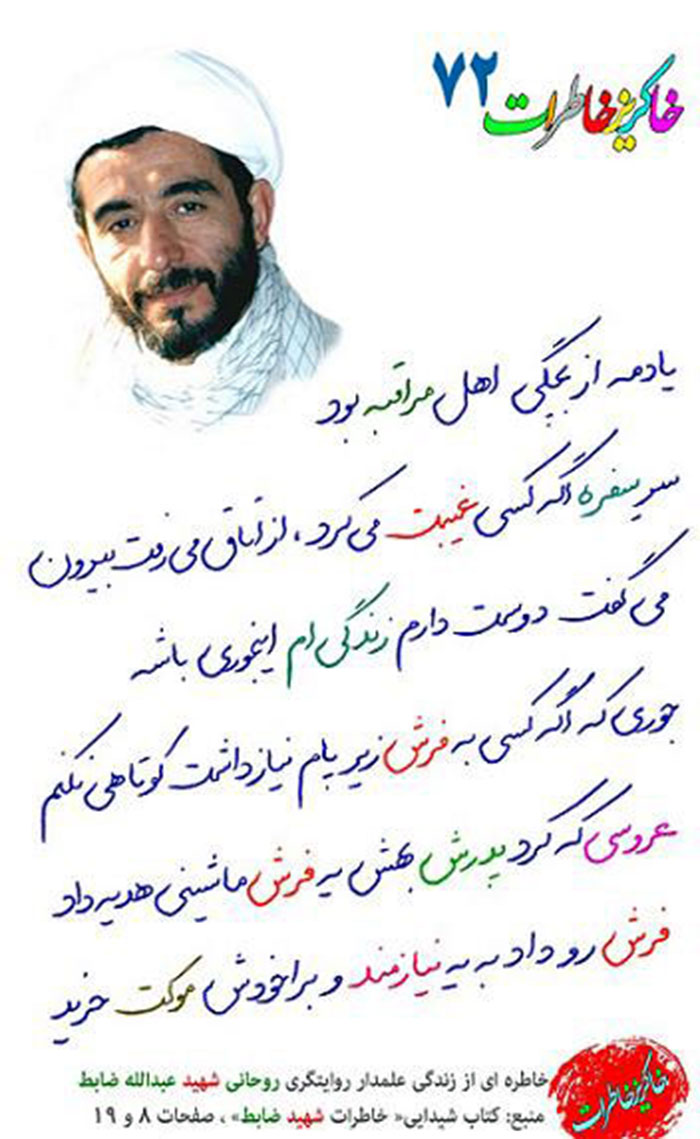 خاکریز خاطرات ۷۲
یادمه از بچگی اهل مراقبه بود
سر سفره اگه کسی غیبت می کرد ، از اتاق می رفت بیرون
می گفت دوست دارم زندگی ام اینجوری باشه
جوری که اگه کسی به فرش زیر پام نیاز داشت کوتاهی نکنم
عروسی که کرد پدرش بهش یه فرش ماشینی هدیه داد
فرش رو داد به یه نیازمند و برا خودش موکت خرید
خاطره ای از زندگی علمدار روایتگری روحانی شهید عبدالله ضابط
منبع: کتاب شیدایی« خاطرات شهید ضابط» ، صفحات ۸ و ۱۹
خاکریز خاطرات